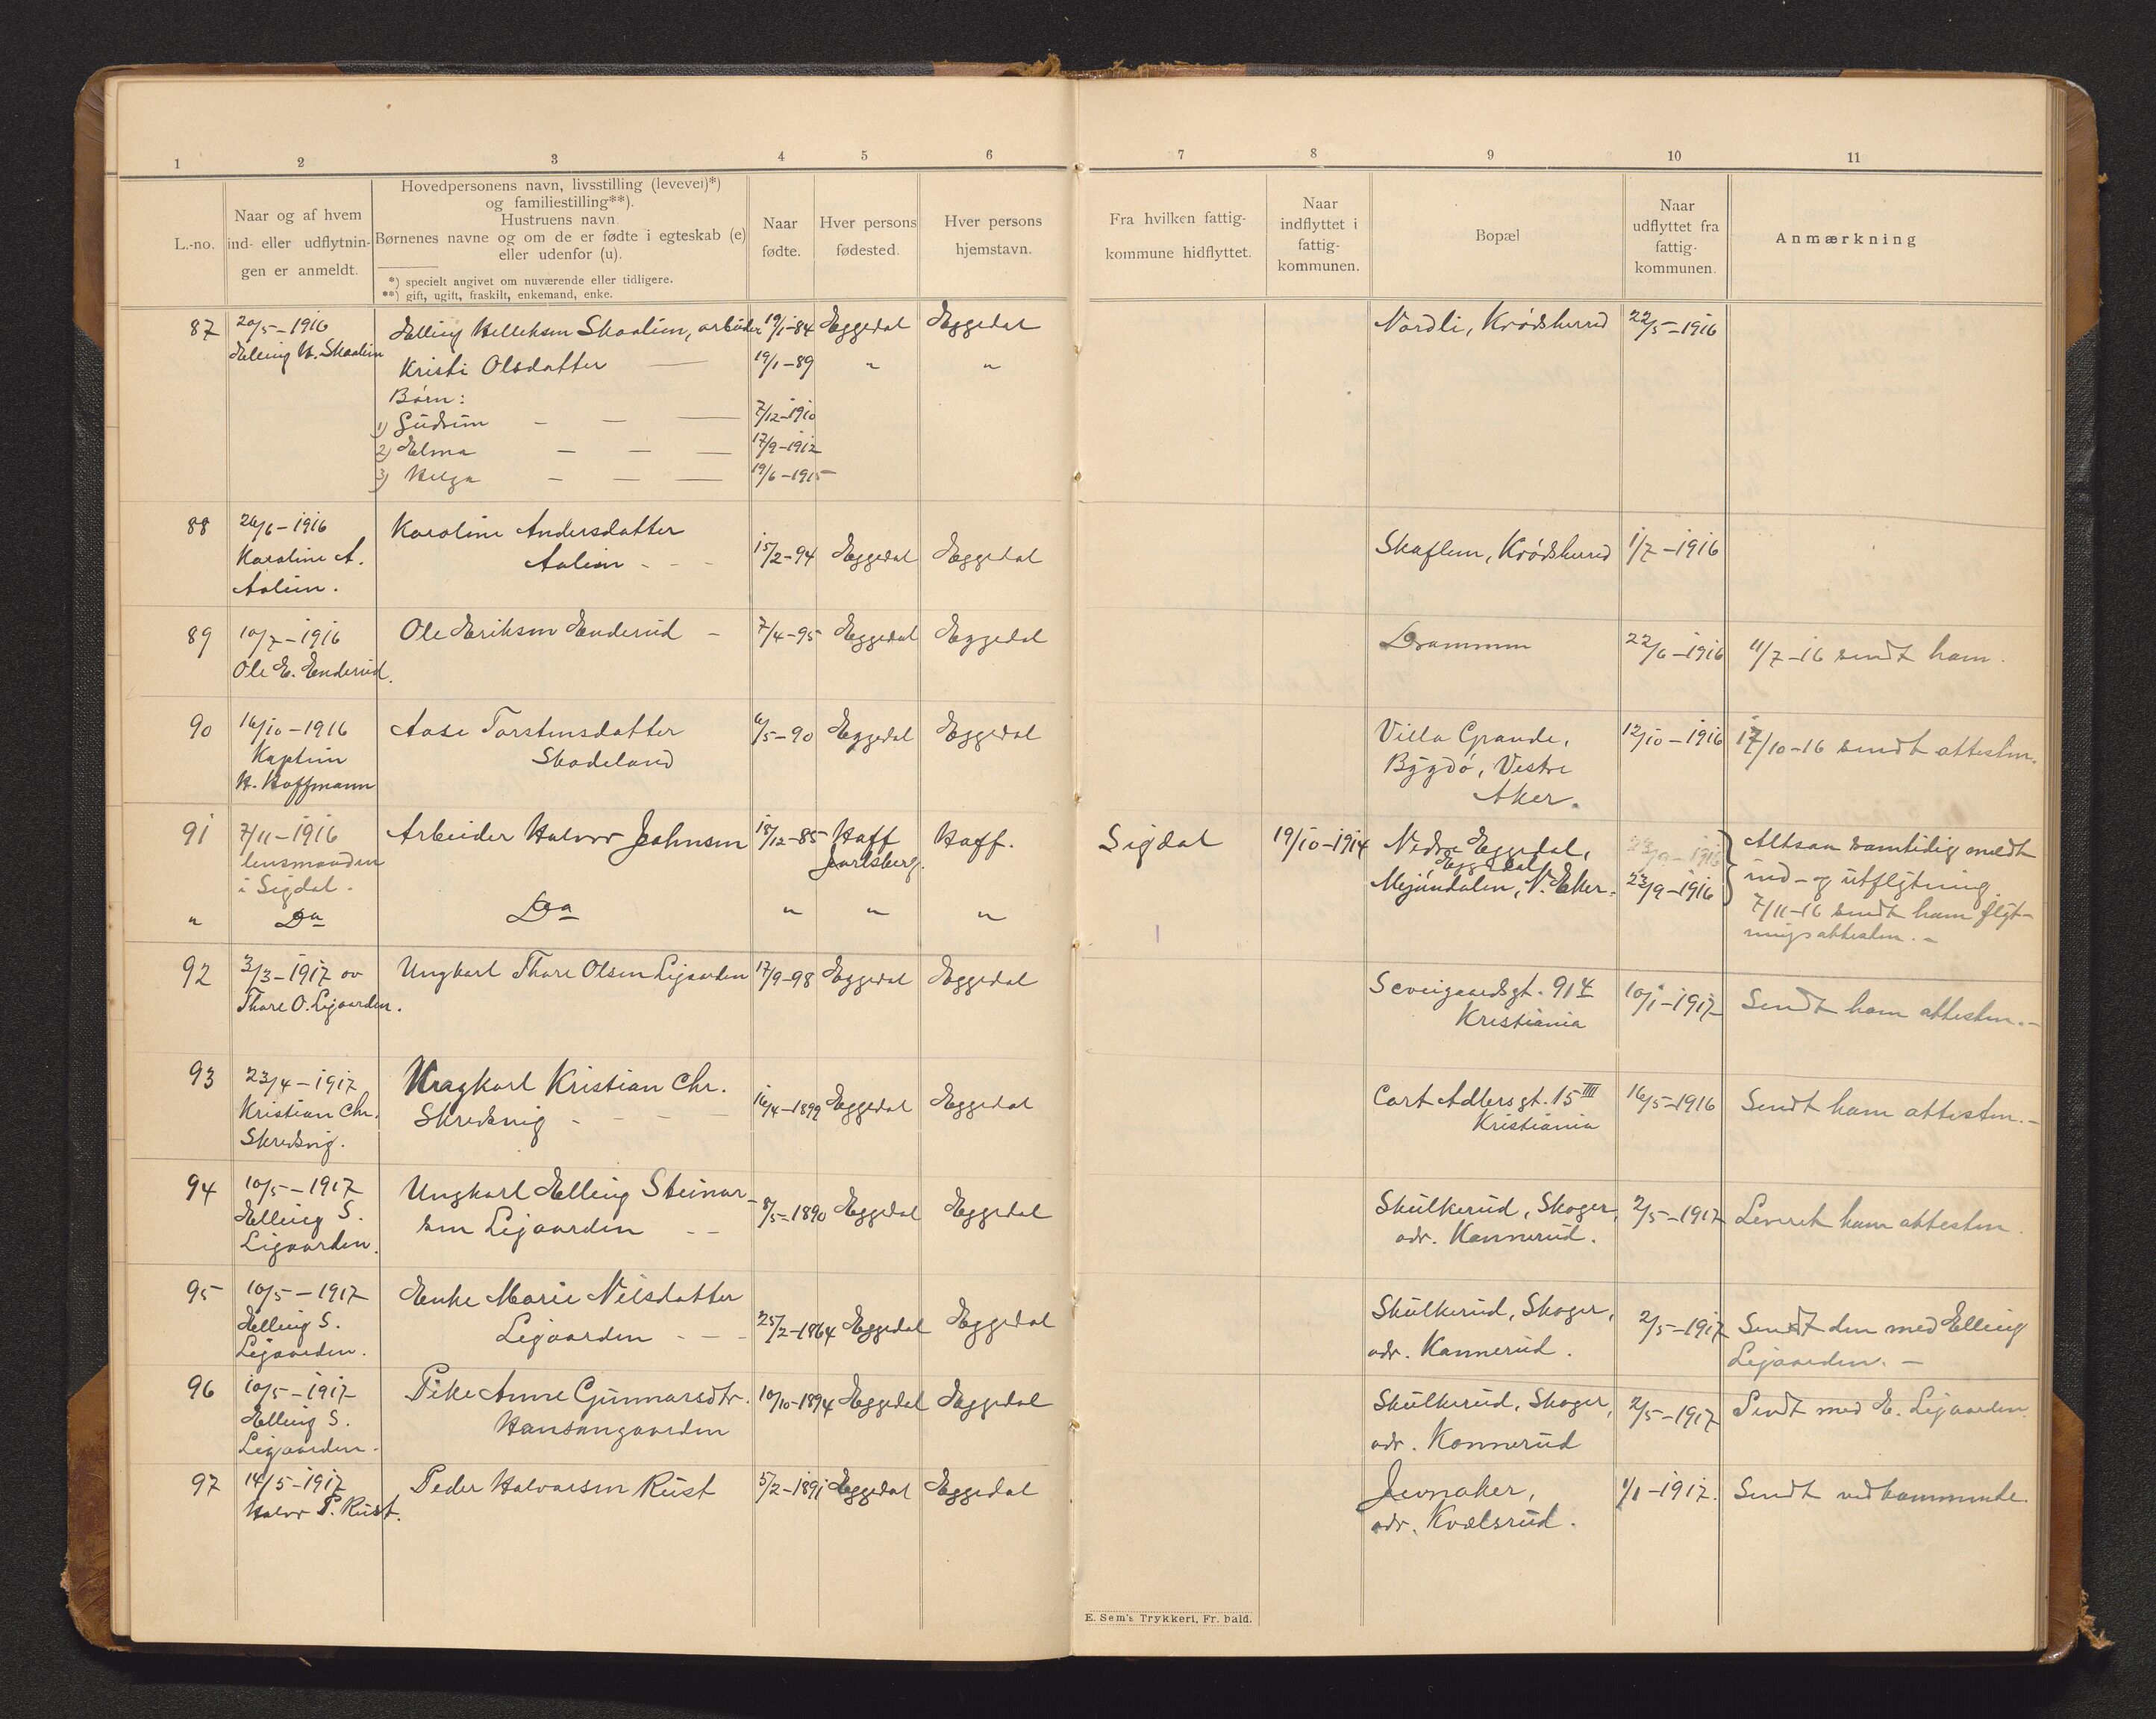 1 2 3 4 5 6 7 8 9 10 11
L.-no.
Naar og af hvem
ind- eller udflytnin-
gen er anmeldt.
Hovedpersonens navn, livsstilling (levevei)*)
og familiestilling**).
Hustruens navn.
Børnenes navne og om de er fødte i egteskab (e)
eller udenfor (u).
*) specielt angivet om nuværende eller tidligere.
**) gift, ugift, fraskilt, enkemand, enke.
Naar
fødte.
Hver persons
fødested.
Hver persons
hjemstavn.
Fra hvilken fattig-
kommune hidflyttet.
Naar
indflyttet i
fattig-
kommunen.
Bopæl
Naar
udflyttet fra
fattig-
kommunen.
Anmærkning
87 20/5-1916 Elling Helleksen Skaalien, arbeider 19/1-84 Eggedal Eggedal Nordli, Krødsherred 22/5-1916
Elling H. Skaalien
Kristi Olsdatter 19/1-89 " "
Børn:
1) Gudrun - - 7/12-1910
2) Elma - - 17/9-1912
3) Helga - - 19/6-1915
88 26/6-1916 Karoline Andersdatter
Karoline A. Aalien - - 15/2-94 Eggedal Eggedal Skaflem, Krødsherred 1/7-1916
Aalien.
89 10/7-1916 Ole Eriksen Enderud - 7/4-95 Eggedal Eggedal Drammen 22/6-1916 11/7-16 sendt ham.
Ole E. Enderud.
90 16/10-1916 Aase Torstensdatter 6/5-90 Eggedal Eggedal Villa Grande, 12/10-1916 17/10-16 sendt attesten.
Kaptein Skadeland Bygdø, Vestre
H. Hoffmann Aker.
91 7/11-1916 Arbeider Halvor Johnsen 18/12-85 Haff Haff. Sigdal 19/10-1914 Nedre Eggedal, 23/9-1916 Altsaa samtidig meldt
lensmanden Jarlsberg. Eggedal
i Sigdal. Mjøndalen, N. Eker. 23/9-1916 ind- og utflytning.
" Do Do " " " 7/11-16 sendt ham flyt-
ningsattesten.-
92 3/3-1917 av Ungkarl Thore Olsen Ligaarden 17/9-98 Eggedal Eggedal Sveigaardsgt. 91 4 10/1-1917 Sendt ham attesten.-
Thore O. Ligaarden. Kristiania
93 23/4-1917 Ungkarl Kristian Chr.
Kristian Chr. Skredsvig - - - 16/4-1899 Eggedal Eggedal Cort Adlersgt. 15 III 16/5-1916 Sendt ham attesten.-
Skredsvig. Kristiania
94 10/5-1917 Ungkarl Elling Steinar-
Elling S. sen Ligaarden - - 8/5-1890 Eggedal Eggedal Skulkerud, Skoger, 2/5-1917 Levert ham attesten.
Ligaarden. adr. Konnerud.
95 10/5-1917 Enke Marie Nilsdatter
Elling S. Ligaarden - - 25/2-1864 Eggedal Eggedal Skulkerud, Skoger, 2/5-1917 Sendt den med Elling
Ligaarden. adr. Konnerud. Ligaarden. -
96 10/5-1917 Pike Anne Gunnarsdtr. 10/10-1894 Eggedal Eggedal Skulkerud, Skoger, 2/5-1917 Sendt med E. Ligaarden.
Elling S. Hansengaarden adr. Konnerud
Ligaarden.
97 14/5-1917 Peder Halvorsen Rust 5/2-1891 Eggedal Eggedal Jevnaker, 1/1-1917. Sendt vedkommende.
Halvor P. Rust. adr. Kvælsrud.
E. Sem's Trykkeri, Fr. hald.